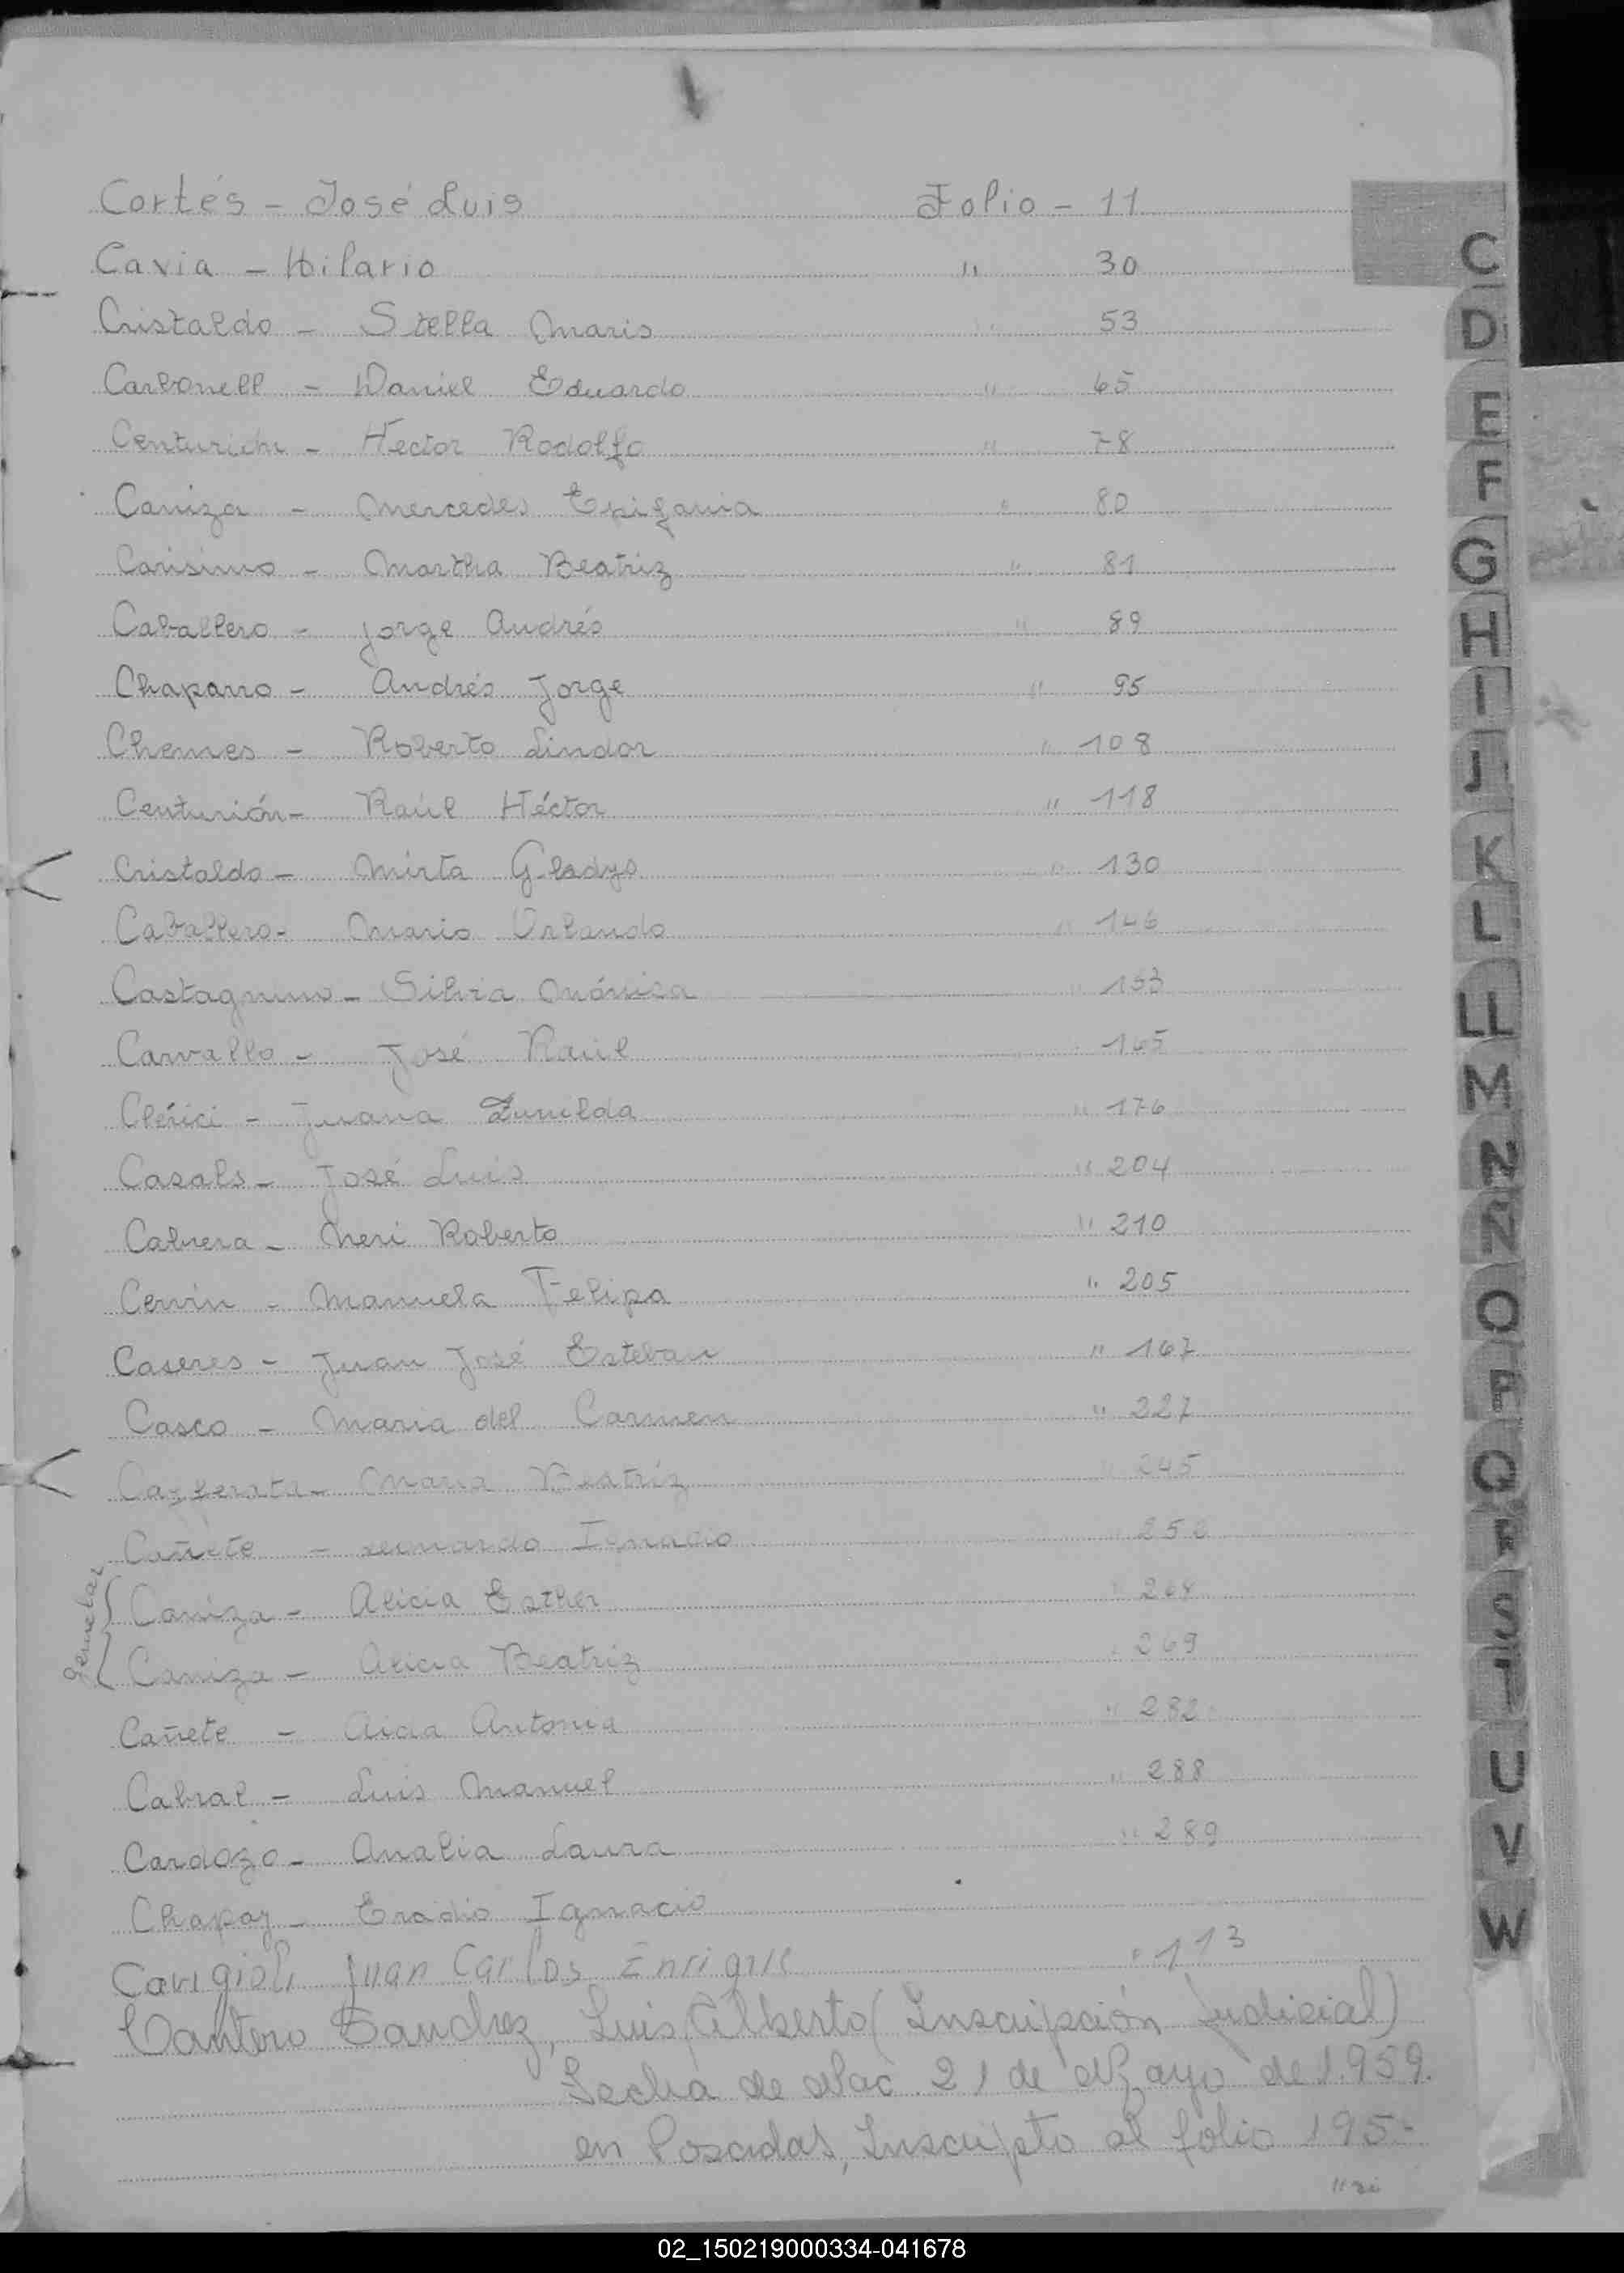 Cortés - José Luis Folio - 11
Cavia - Hilario " 30
Cristaldo - Stella Maris " 53
Carbonell - Daniel Eduardo " 65
Centurión - Hector Rodolfo " 78
Caniza - Mercedes Epifania " 80
Carisimo - Martha Beatriz " 81
Caballero - Jorge Andrés " 89
Chaparro - Andrés Jorge " 95
Chemes - Roberto Lindor " 108
Centurión - Raúl Héctor " 118
Cristaldo - Mirta Gladys " 130
Caballero - Mario Orlando " 146
Castagnino - Silvia Mónica " 153
Carvallo - José Raúl " 165
Clérici - Juana Zunilda " 176
Casals - José Luis " 204
Cabrera - Neri Roberto " 210
Cervin - Manuela Felipa " 205
Caseres - Juan José Esteban " 167
Casco - Maria del Carmen " 227
Maria Beatriz " 245
Cañete - Leonardo Ignacio
Caniza - Alicia Esther " 268
gemelas
Caniza - Alicia Beatriz " 269
Cañete - Aida Antonia " 282
Cabral - Luis Manuel " 288
Cardozo - Analia Laura " 289
Chapay - Eradio Ignacio
Cavigioli Juan Carlos Enrique " 113
Cantero Sanchez, Luis Alberto (Inscripción Judicial)
Fecha de Nac. 21 de Mayo de 1.959.
en Posadas, Inscripto al folio 195.-
C
D
E
F
G
H
I
J
K
L
LL
M
N
Ñ
O
P
Q
R
S
T
U
V
W
02_150219000334-041678